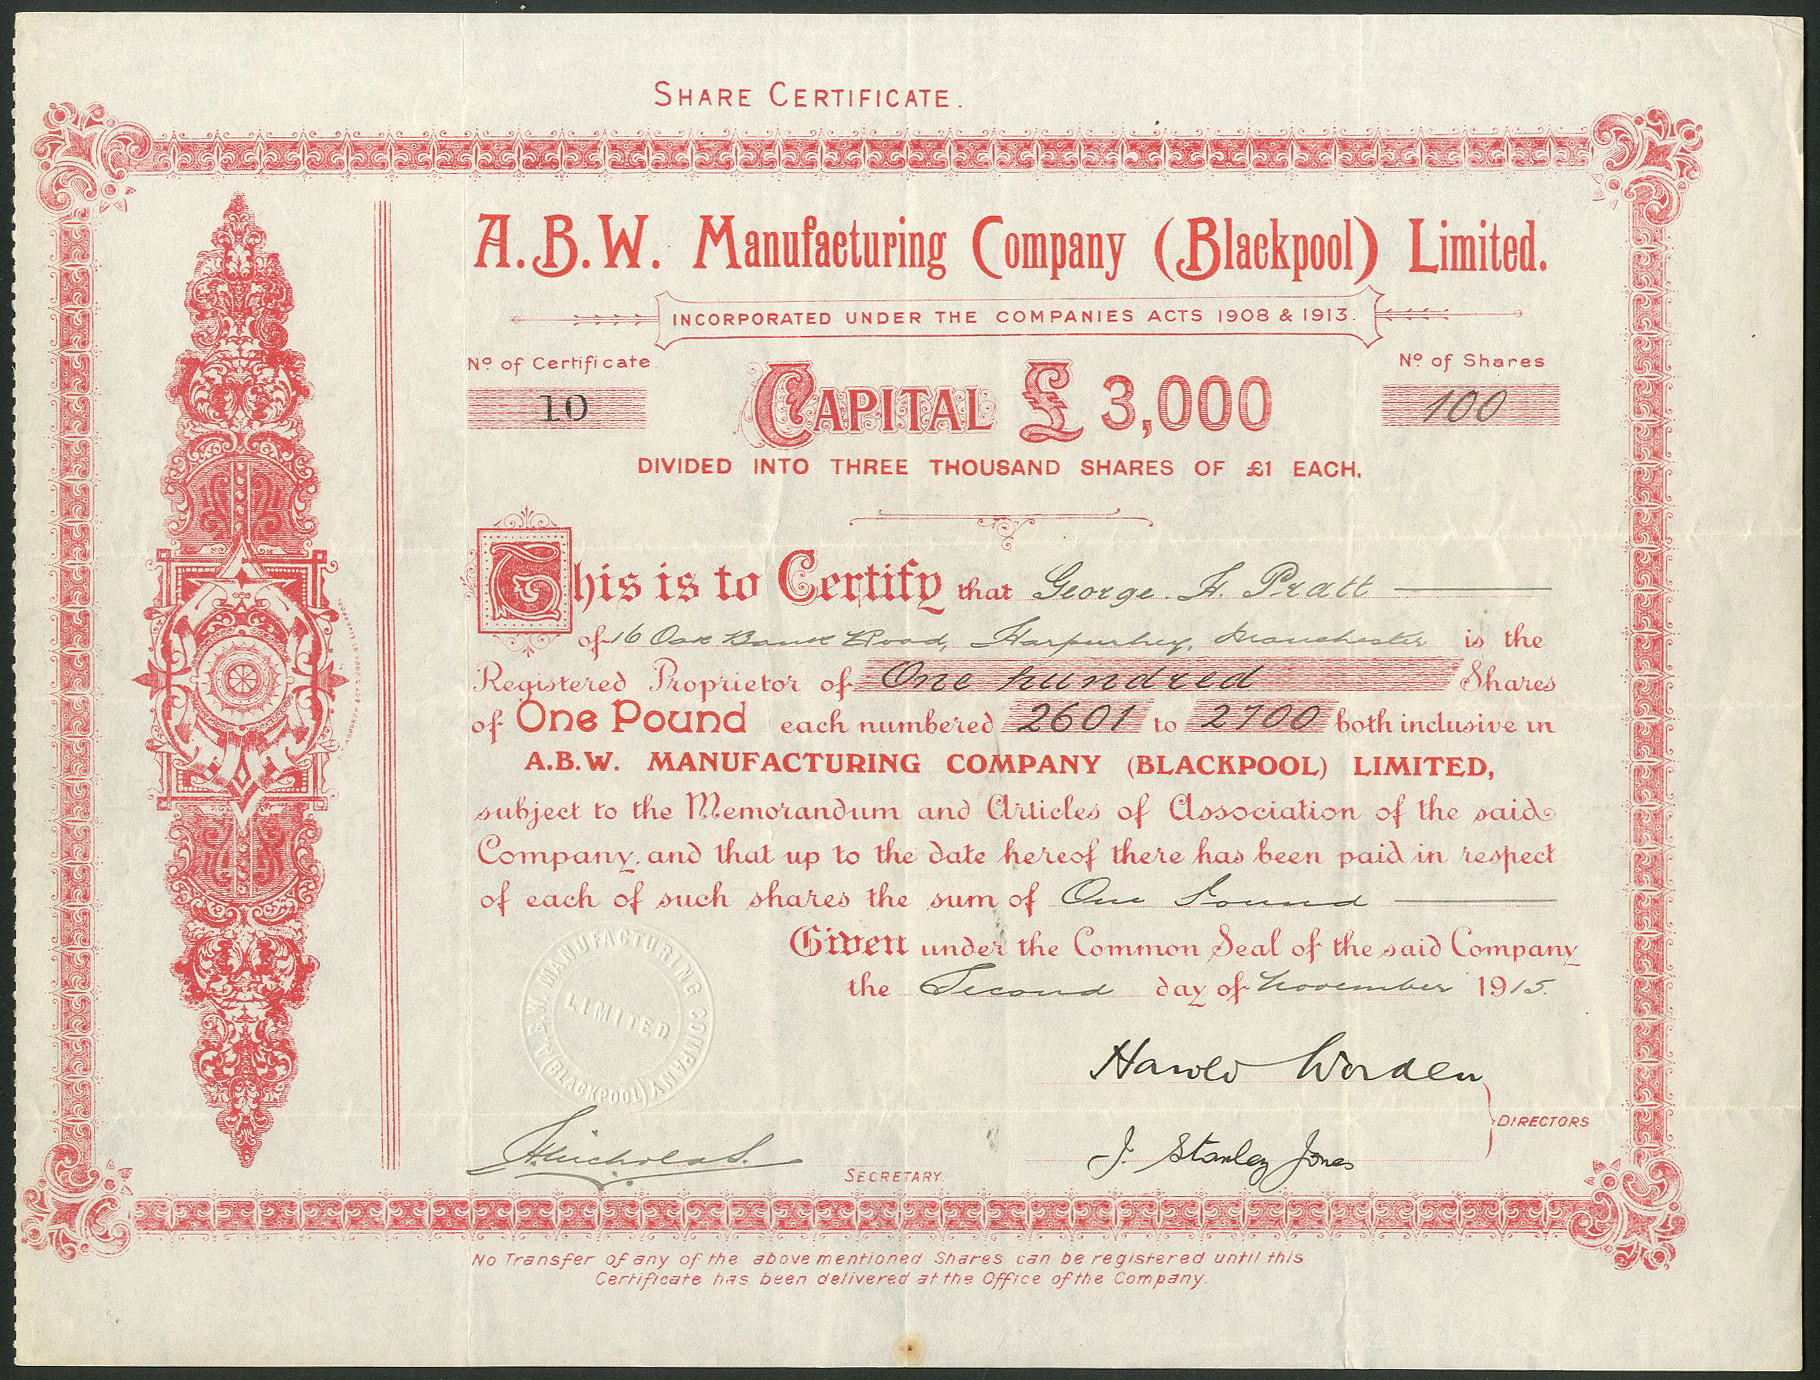 SHARE CERTIFICATE.
A.B.W. Manufacturing Company (Blackpool) Limited.
INCORPORATED UNDER THE COMPANIES ACTS 1908 & 1913.
Nº of Certificate
10
CAPITAL £3,000
Nº of Shares
100
DIVIDED INTO THREE THOUSAND SHARES OF £1 EACH.
This is to Certify that George. H. Pratt
of 16 Oak Bank Road, Harpurhey, Manchester is the
Registered Proprietor of One hundred Shares
of One Pound each numbered 2601 to 2700 both inclusive in
A.B.W. MANUFACTURING COMPANY (BLACKPOOL) LIMITED,
subject to the Memorandum and Articles of Association of the said
Company, and that up to the date hereof there has been paid in respect
of each of such shares the sum of One Pound
Given under the Common Seal of the said Company
the Second day of November 1915.
A.B.W. MANUFACTURING COMPANY (BLACKPOOL)
LIMITED
Harold Worden
DIRECTORS
J. Stanley Jones
H. Nicholas.
SECRETARY.
No Transfer of any of the above mentioned Shares can be registered until this
Certificate has been delivered at the Office of the Company.